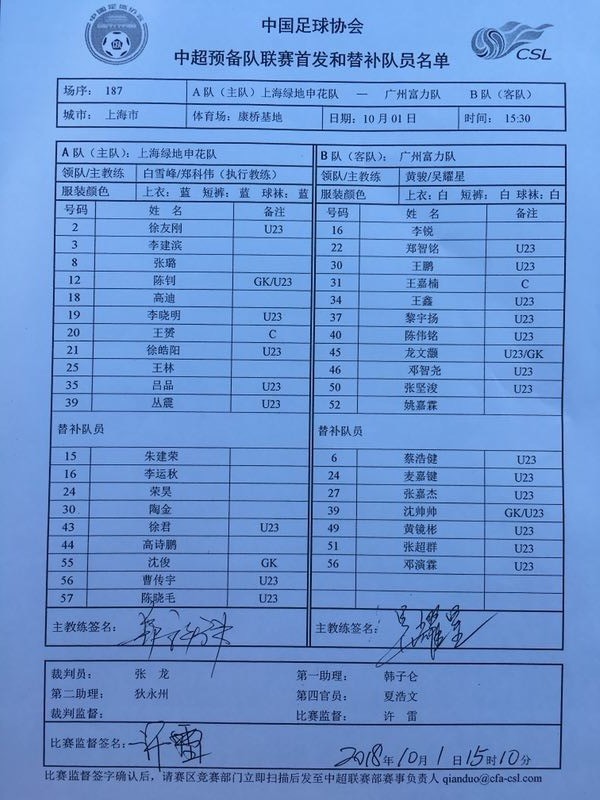 中国足球协会
CSL
中超预备队联赛首发和替补队员名单
场序： 187 A 队（主队）上海绿地申花队 — 广州富力队 B 队（客队）
城市： 上海市 体育场：康桥基地 日期：10 月 01 日 时间： 15:30
A 队（主队）：上海绿地申花队 B 队（客队）： 广州富力队
领队/主教练 白雪峰/郑科伟（执行教练） 领队/主教练 黄骏/吴耀星
服装颜色 上衣：蓝 短裤：蓝 球袜：蓝 服装颜色 上衣：白 短裤：白 球袜：白
号码 姓 名 备注 号码 姓 名 备注
2 徐友刚 U23 16 李锐
3 李建滨 22 郑智铭 U23
8 张璐 30 王鹏 U23
12 陈钊 GK/U23 31 王嘉楠 C
18 高迪 34 王鑫 U23
19 李晓明 U23 37 黎宇扬 U23
20 王赟 C 40 陈伟铭 U23
21 徐皓阳 U23 45 龙文灏 U23/GK
25 王林 46 邓智尧 U23
35 吕品 U23 50 张坚浚 U23
39 丛震 U23 52 姚嘉霖
替补队员 替补队员
15 朱建荣 6 蔡浩健 U23
16 李运秋 24 麦嘉键 U23
24 荣昊 27 张嘉杰 U23
30 陶金 39 沈帅帅 GK/U23
43 徐君 U23 49 黄镜彬 U23
44 高诗鹏 51 张超群 U23
55 沈俊 GK 56 邓演霖 U23
56 曹传宇 U23
57 陈晓毛 U23
主教练签名： 主教练签名： 吴耀星
裁判员： 张 龙 第一助理： 韩子仑
第二助理： 狄永州 第四官员： 夏浩文
裁判监督： 比赛监督： 许 雷
比赛监督签名： 许雷 2018年10月1日15时10分
比赛监督签字确认后，请赛区竞赛部门立即扫描后发至中超联赛部赛事负责人 qianduo@cfa-csl.com